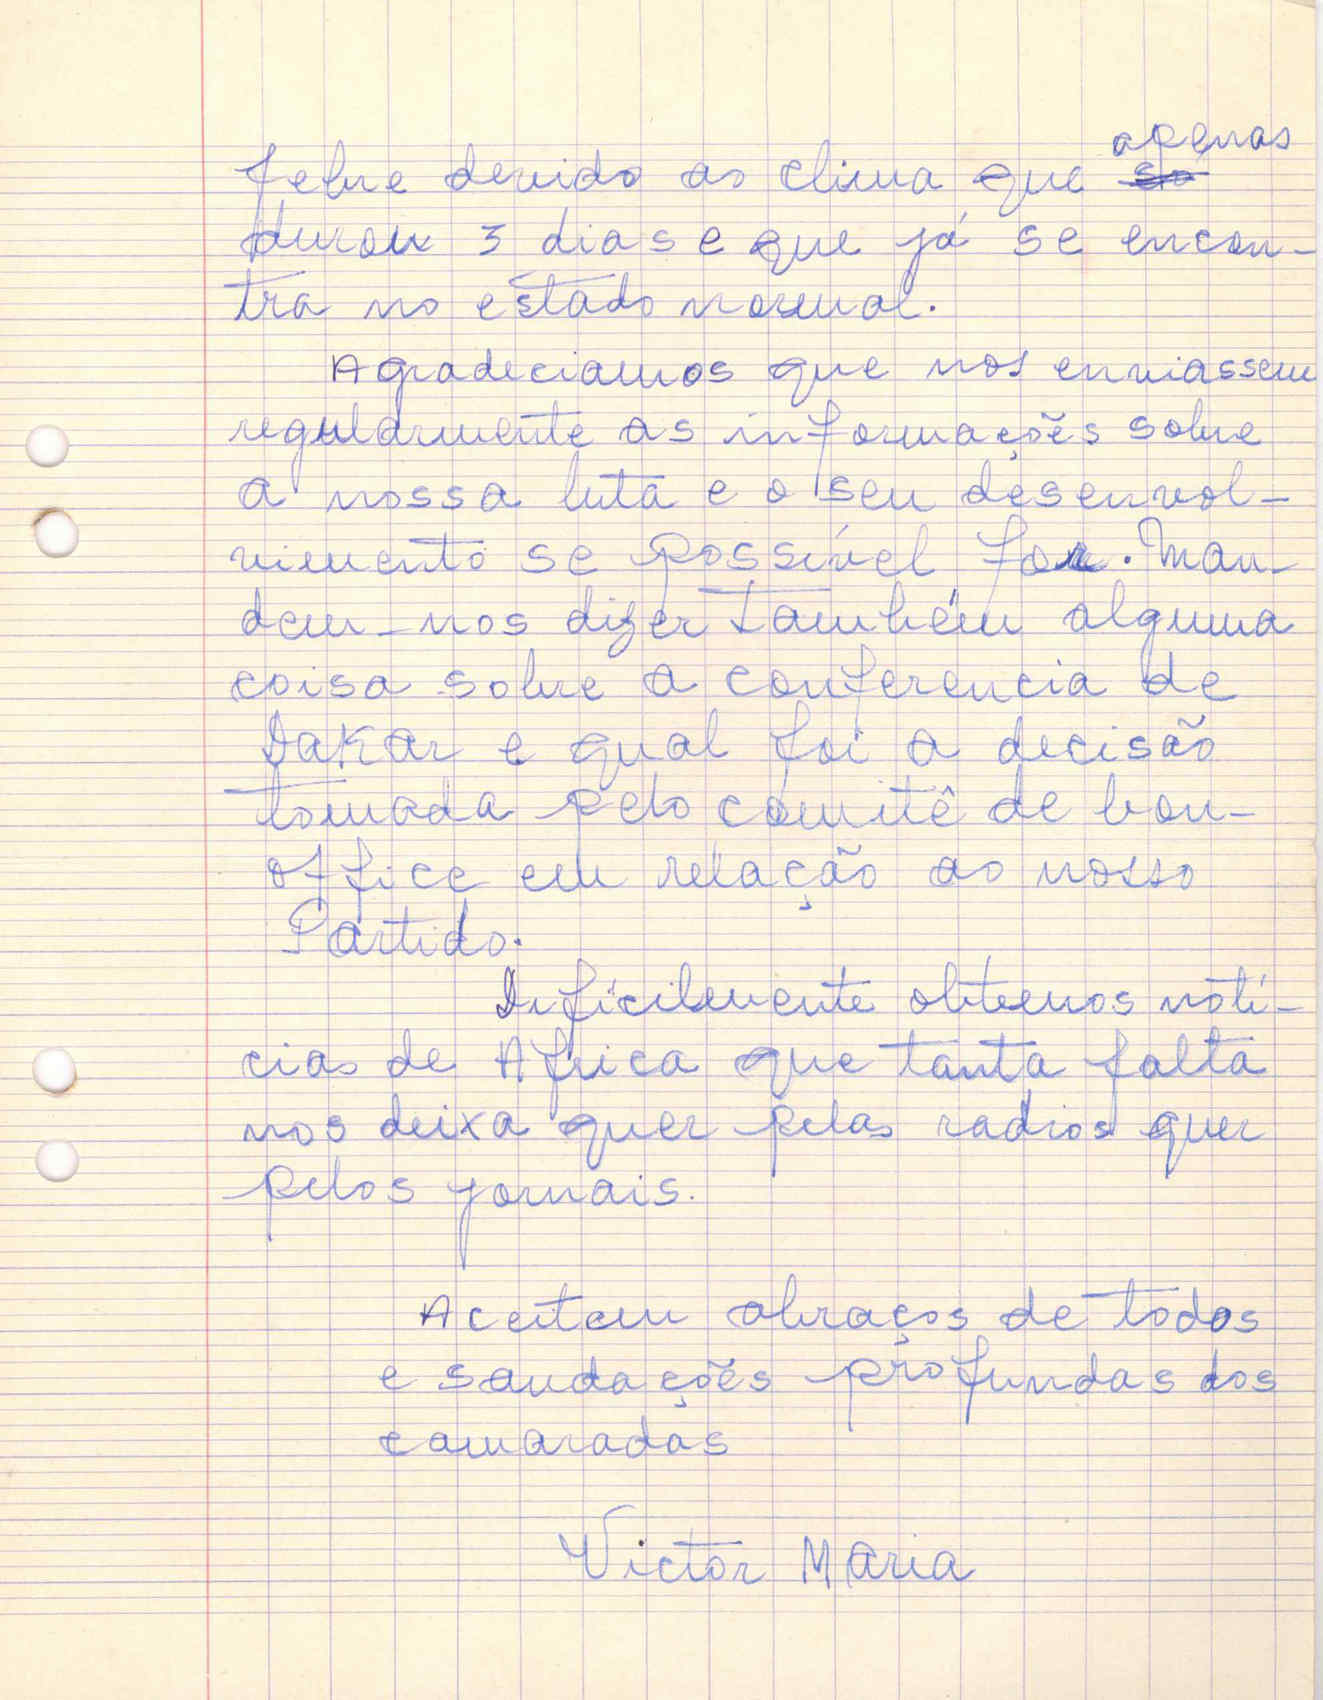 apenas
febre devido ao clima que só
durou 3 dias e que já se encon-
tra no estado normal.
Agradeciamos que nos enviassem
regularmente as informações sobre
a nossa luta e o seu desenvol-
vimento se possível for. Man-
dem-nos dizer também alguma
coisa sobre a conferencia de
Dakar e qual foi a decisão
tomada pelo comitê de bon-
office em relação ao nosso
Partido.
Dificilmente obtemos notí-
cias de Africa que tanta falta
nos deixa quer pelas radios quer
pelos jornais.
Aceitem abraços de todos
e saudações profundas dos
camaradas
Victor Maria